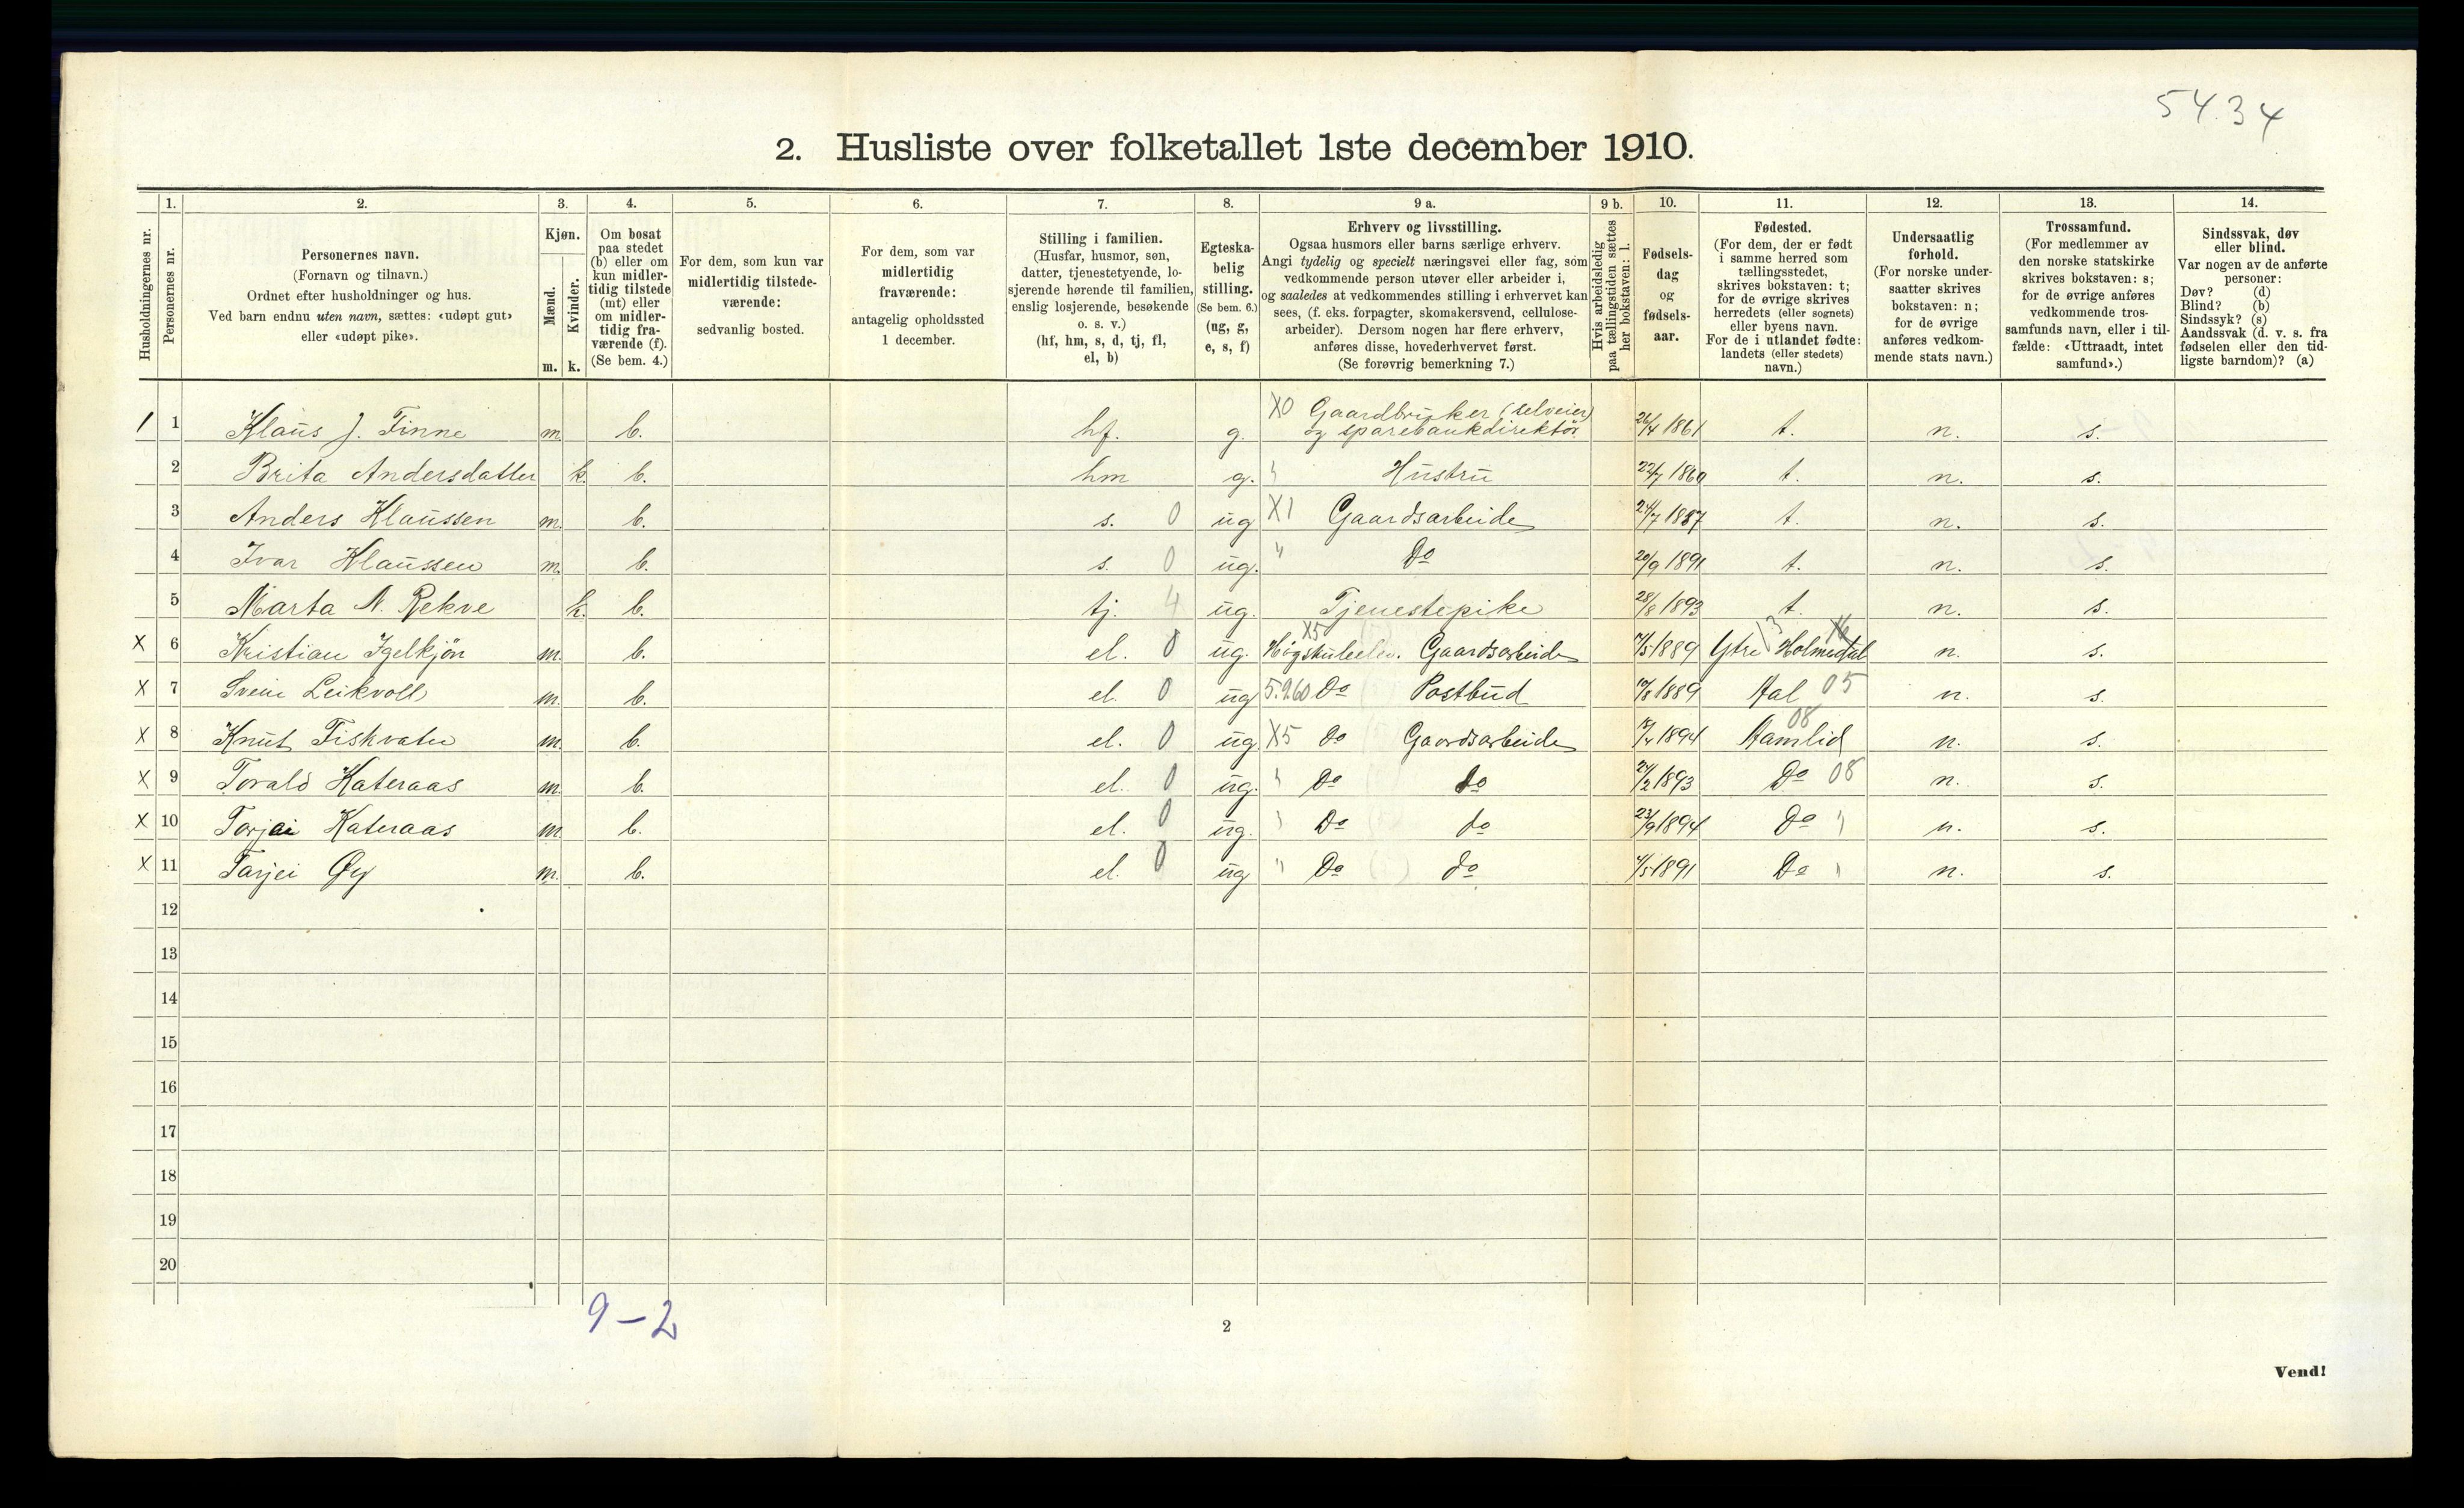 54.34
2. Husliste over folketallet 1ste december 1910.
1. 2. 3. 4. 5. 6. 7. 8. 9 a. 9 b. 10. 11. 12. 13. 14.
Husholdningernes nr.
Personernes nr.
Personernes navn.
(Fornavn og tilnavn.)
Ordnet efter husholdninger og hus.
Ved barn endnu uten navn, sættes: «udøpt gut»
eller «udøpt pike».
Kjøn.
Mænd.
Kvinder.
m. k.
Om bosat
paa stedet
(b) eller om
kun midler-
tidig tilstede
(mt) eller
om midler-
tidig fra-
værende (f).
(Se bem. 4.)
For dem, som kun var
midlertidig tilstede-
værende:
sedvanlig bosted.
For dem, som var
midlertidig
fraværende:
antagelig opholdssted
1 december.
Stilling i familien.
(Husfar, husmor, søn,
datter, tjenestetyende, lo-
sjerende hørende til familien,
enslig losjerende, besøkende
o. s. v.)
(hf, hm, s, d, tj, fl,
el, b)
Egteska-
belig
stilling.
(Se bem. 6.)
(ug, g,
e, s, f)
Erhverv og livsstilling.
Ogsaa husmors eller barns særlige erhverv.
Angi tydelig og specielt næringsvei eller fag, som
vedkommende person utøver eller arbeider i,
og saaledes at vedkommendes stilling i erhvervet kan
sees, (f. eks. forpagter, skomakersvend, cellulose-
arbeider). Dersom nogen har flere erhverv,
anføres disse, hovederhvervet først.
(Se forøvrig bemerkning 7.)
Hvis arbeidsledig
paa tællingstiden sættes
her bokstaven: l.
Fødsels-
dag
og
fødsels-
aar.
Fødested.
(For dem, der er født
i samme herred som
tællingsstedet,
skrives bokstaven: t;
for de øvrige skrives
herredets (eller sognets)
eller byens navn.
For de i utlandet fødte:
landets (eller stedets)
navn.)
Undersaatlig
forhold.
(For norske under-
saatter skrives
bokstaven: n;
for de øvrige
anføres vedkom-
mende stats navn.)
Trossamfund.
(For medlemmer av
den norske statskirke
skrives bokstaven: s;
for de øvrige anføres
vedkommende tros-
samfunds navn, eller i til-
fælde: «Uttraadt, intet
samfund».)
Sindssvak, døv
eller blind.
Var nogen av de anførte
personer:
Døv? (d)
Blind? (b)
Sindssyk? (s)
Aandssvak (d. v. s. fra
fødselen eller den tid-
ligste barndom)? (a)
1 1 Klaus J. Finne m. b. hf. g. X0 Gaardbruker (selveier) og sparebankdirektør 26/4 1861 t. n. s.
2 Brita Andersdatter k. b. hm g. " Hustru 22/7 1860 t. n. s.
3 Anders Klaussen m. b. s. 0 ug X1 Gaardsarbeider 24/7 1887 t. n. s.
4 Ivar Klaussen m. b. s. 0 ug. " Do 20/9 1891 t. n. s.
5 Marta N. Rekve k. b. tj. 4 ug. Tjenestepike 28/8 1893 t. n. s.
X 6 Kristian Igelkjøn m. b. el. 0 ug. X5 Høgskuleelev. Gaardsarbeider /5 1889 Ytre Holmedal 13 n. s.
X 7 Svein Leikvoll m. b. el. 0 ug 5.260 Do Postbud /8 1889 Aal 05 n. s.
X 8 Knut Fiskvatn m. b. el. 0 ug. X5 do Gaardsarbeider /4 1894 Hamlid 08 n. s.
X 9 Torald Kateraas m. b. el. 0 ug. " Do do 24/2 1893 Do 08 n. s.
X 10 Torjei Kateraas m b. el. 0 ug. " Do do 23/9 1894 Do " n. s.
X 11 Tarjei Øy m. b. el. 0 ug " Do do 4/5 1891 Do " n. s.
12
13
14
15
16
17
18
19
20
9-2
2
Vend!